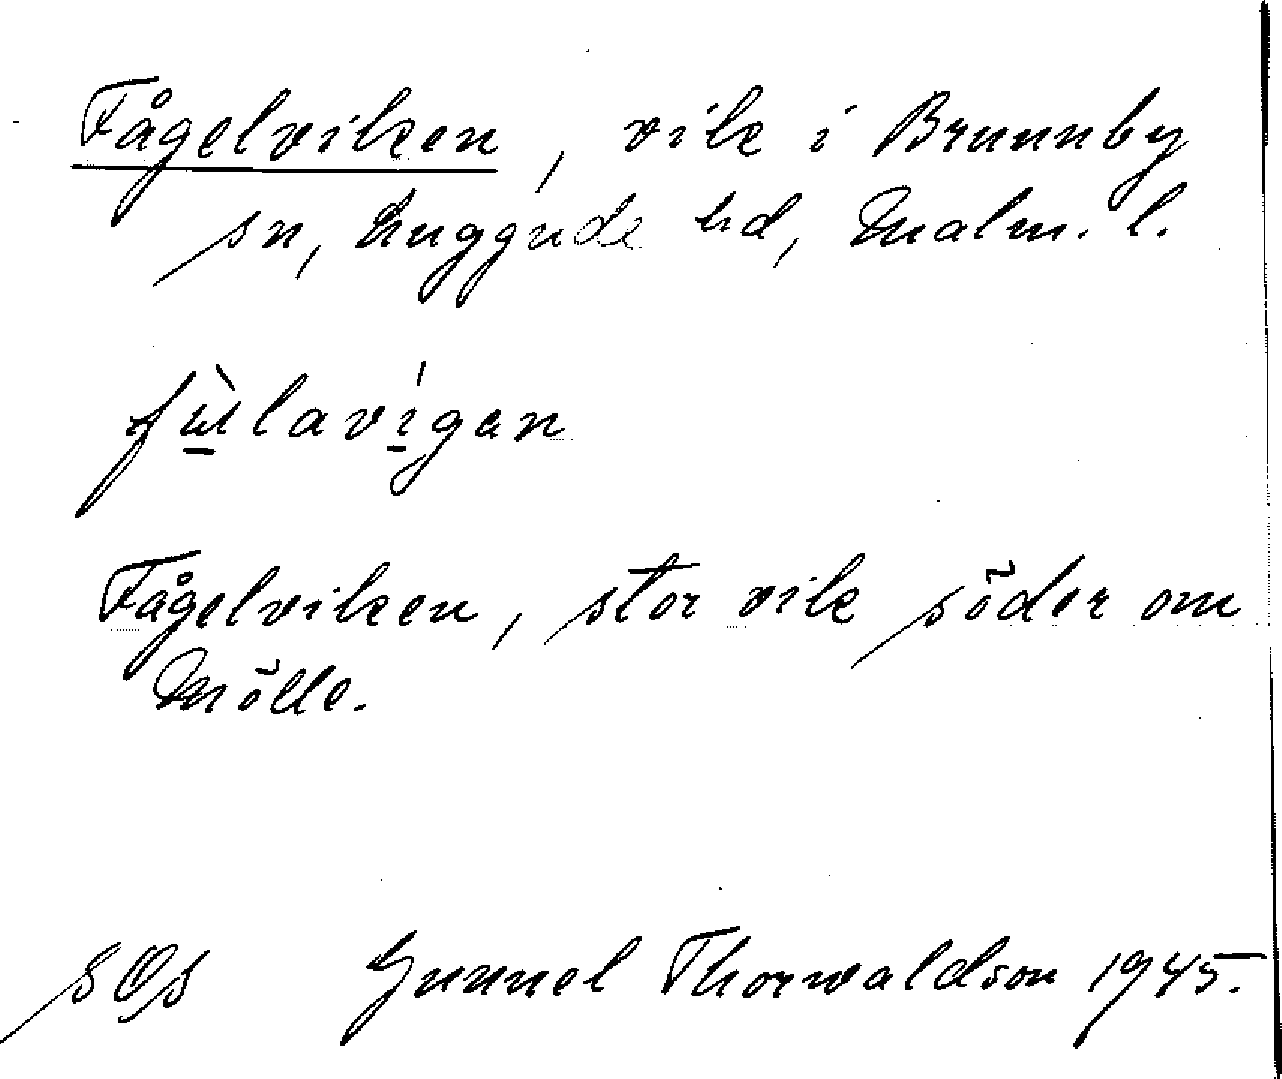 Fågelviken, vik i Brunnby
sn, Luggude hd, Malm. l.
fùlavígan
Fågelviken, stor vik söder om
Mölle.
SOS Gunnel Thorwaldson 1945.